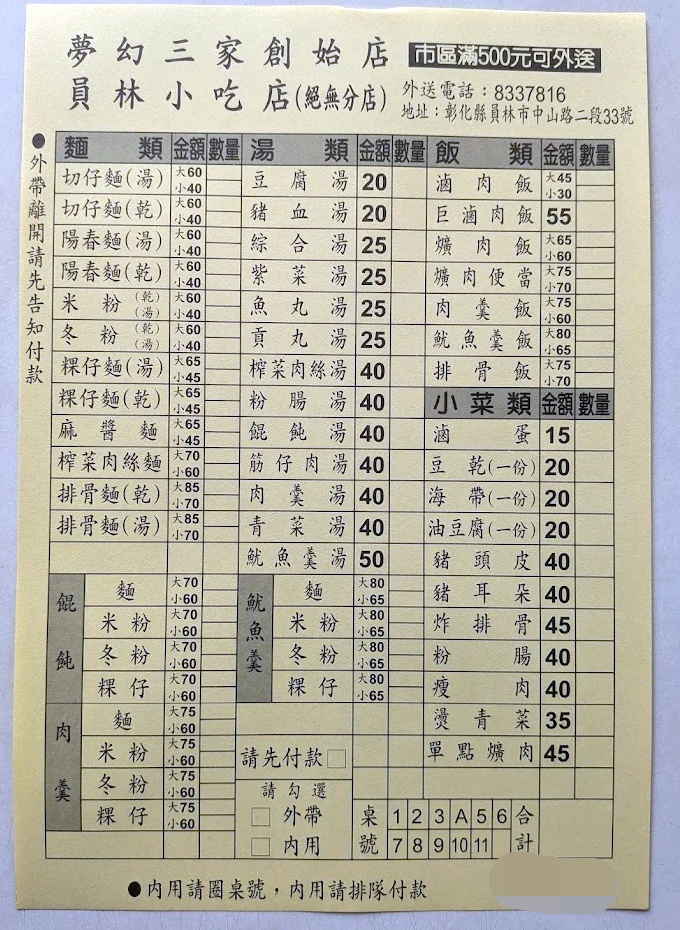 夢幻三家創始店 市區滿500元可外送
員林小吃店(絕無分店) 外送電話：8337816
地址：彰化縣員林市中山路二段33號
●外帶離開請先告知付款
麵類 金額 數量
切仔麵(湯) 大60 小40
切仔麵(乾) 大60 小40
陽春麵(湯) 大60 小40
陽春麵(乾) 大60 小40
米粉(乾)(湯) 大60 小40
冬粉(乾)(湯) 大60 小40
粿仔麵(湯) 大65 小45
粿仔麵(乾) 大65 小45
麻醬麵 大65 小45
榨菜肉絲麵 大70 小60
排骨麵(乾) 大85 小70
排骨麵(湯) 大85 小70
餛飩
麵 大70 小60
米粉 大70 小60
冬粉 大70 小60
粿仔 大70 小60
肉羹
麵 大75 小60
米粉 大75 小60
冬粉 大75 小60
粿仔 大75 小60
湯類 金額 數量
豆腐湯 20
豬血湯 20
綜合湯 25
紫菜湯 25
魚丸湯 25
貢丸湯 25
榨菜肉絲湯 40
粉腸湯 40
餛飩湯 40
筋仔肉湯 40
肉羹湯 40
青菜湯 40
魷魚羹湯 50
魷魚羹
麵 大80 小65
米粉 大80 小65
冬粉 大80 小65
粿仔 大80 小65
請先付款□
請勾選
□外帶
□內用
飯類 金額 數量
滷肉飯 大45 小30
巨滷肉飯 55
爌肉飯 大65 小60
爌肉便當 大75 小70
肉羹飯 大75 小60
魷魚羹飯 大80 小65
排骨飯 大75 小70
小菜類 金額 數量
滷蛋 15
豆乾(一份) 20
海帶(一份) 20
油豆腐(一份) 20
豬頭皮 40
豬耳朵 40
炸排骨 45
粉腸 40
瘦肉 40
燙青菜 35
單點爌肉 45
桌號 1 2 3 A 5 6
7 8 9 10 11
合計
●內用請圈桌號，內用請排隊付款